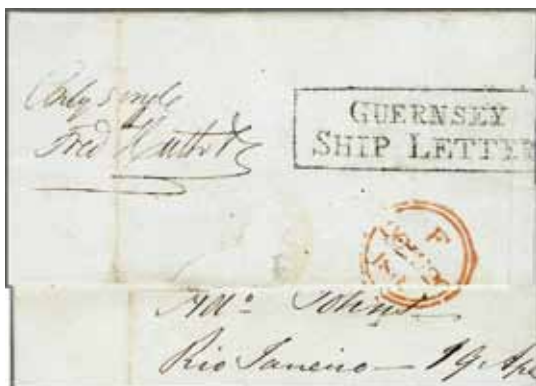 Only single
Fred Huth &
GUERNSEY
SHIP LETTER
F
18
Johns
Rio Janeiro — 19 Apr